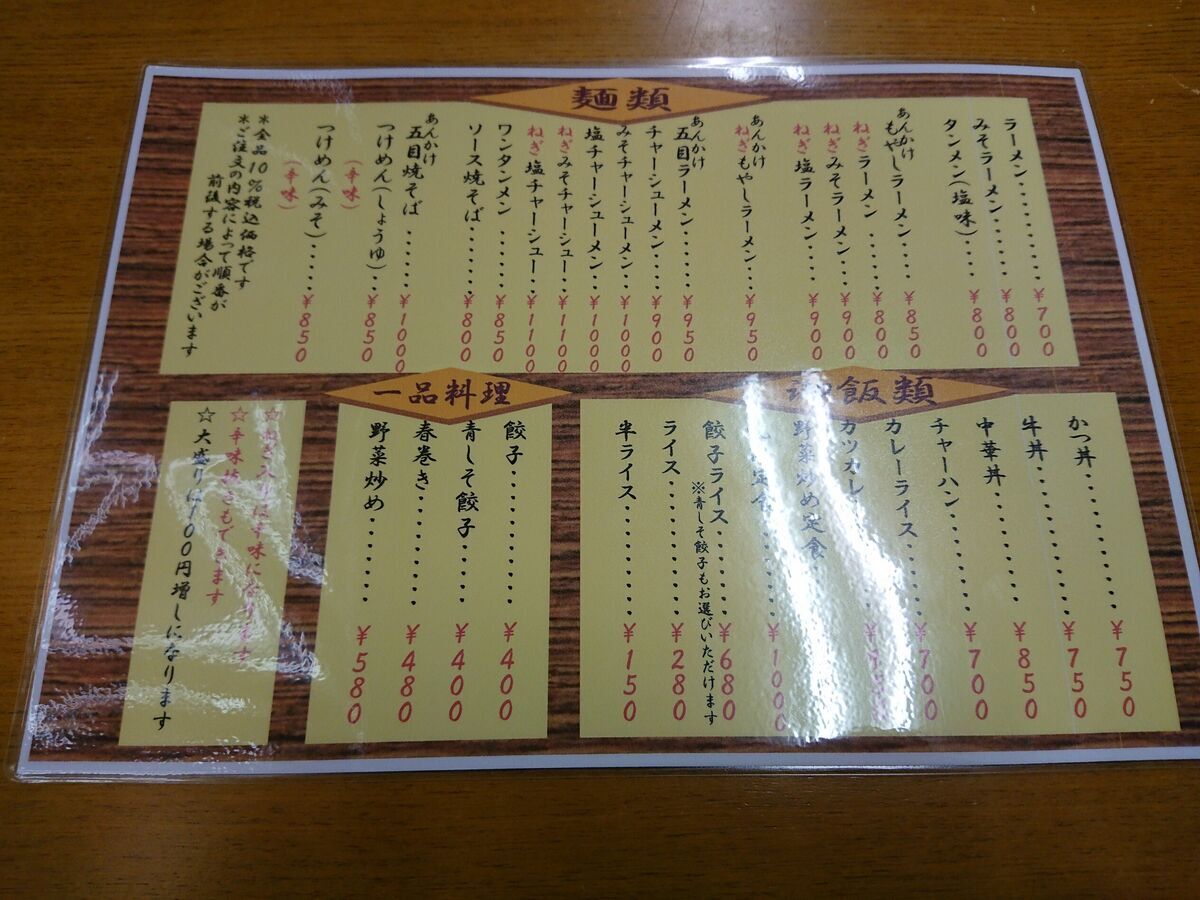 麺類
ラーメン・・・・・・・・・¥700
みそラーメン・・・・・・¥800
タンメン(塩味)・・・・・¥800
あんかけ
もやしラーメン・・・・¥850
ねぎラーメン・・・・・・¥800
ねぎみそラーメン・・・・¥900
ねぎ塩ラーメン・・・・・¥900
あんかけ
ねぎもやしラーメン・・・¥950
あんかけ
五目ラーメン・・・・・¥950
チャーシューメン・・・・¥900
みそチャーシューメン・・¥1000
塩チャーシューメン・・・¥1000
ねぎみそチャーシュー・・¥1100
ねぎ塩チャーシュー・・・¥1100
ワンタンメン・・・・・・¥850
ソース焼そば・・・・・・¥800
あんかけ
五目焼そば・・・・・・¥1000
つけめん(しょうゆ)・・¥850
(辛味)
つけめん(みそ)・・・・・¥850
(辛味)
*全品10%税込価格です
*ご注文の内容によって順番が
前後する場合がございます
飯類
かつ丼・・・・・・・・・¥750
牛丼・・・・・・・・・・¥750
中華丼・・・・・・・・・¥850
チャーハン・・・・・・・¥700
カレーライス・・・・・・¥700
カツカレー
野菜炒め定食
定食・・・・・・¥1000
餃子ライス・・・・・・・¥680
※青しそ餃子もお選びいただけます
ライス・・・・・・・・・¥280
半ライス・・・・・・・・¥150
一品料理
餃子・・・・・・・・・・¥400
青しそ餃子・・・・・・・¥400
春巻き・・・・・・・・・¥480
野菜炒め・・・・・・・・¥580
☆ねぎ入りは辛味になります
☆辛味抜きもできます
☆大盛りは100円増しになります